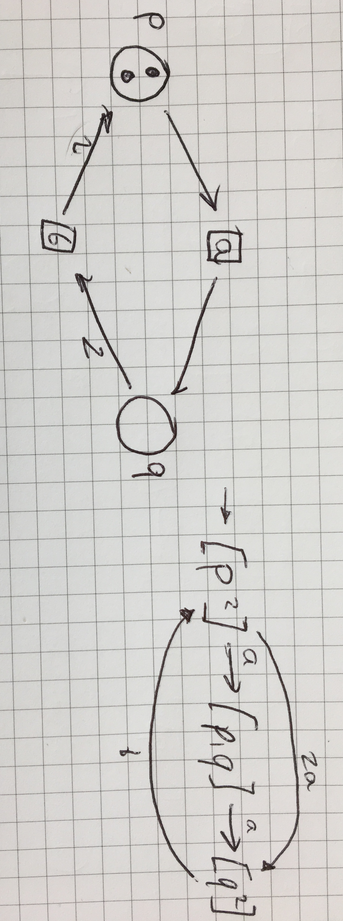 p
a
b
2
2
q
→ [p²] →a [p,q] →a [q²]
2a
b